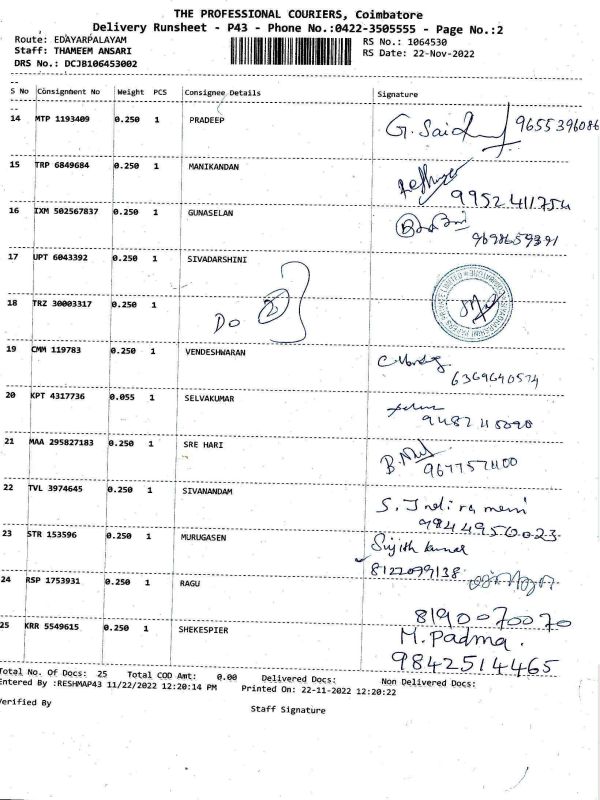 THE PROFESSIONAL COURIERS, Coimbatore
Delivery Runsheet - P43 - Phone No.:0422-3505555 - Page No.:2
Route: EDAYARPALAYAM
Staff: THAMEEM ANSARI
DRS No.: DCJB106453002
RS No.: 1064530
RS Date: 22-Nov-2022
S No Consignment No Weight PCS Consignee Details Signature
14 MTP 1193409 0.250 1 PRADEEP 9655396086
15 TRP 6849684 0.250 1 MANIKANDAN 9952411754
16 IXM 502567837 0.250 1 GUNASELAN 9698659391
17 UPT 6043392 0.250 1 SIVADARSHINI
18 TRZ 30003317 0.250 1 Do 2
19 CMM 119783 0.250 1 VENDESHWARAN 6369640574
20 KPT 4317736 0.055 1 SELVAKUMAR
21 MAA 295827183 0.250 1 SRE HARI
22 TVL 3974645 0.250 1 SIVANANDAM S. Indirameni
9844950023
23 STR 153596 0.250 1 MURUGASEN Sujith kumar
8122099138
24 RSP 1753931 0.250 1 RAGU
8190070070
25 KRR 5549615 0.250 1 SHEKESPIER M. Padma.
9842514465
Total No. Of Docs: 25 Total COD Amt: 0.00 Delivered Docs: Non Delivered Docs:
Entered By :RESHMAP43 11/22/2022 12:20:14 PM Printed On: 22-11-2022 12:20:22
Verified By
Staff Signature